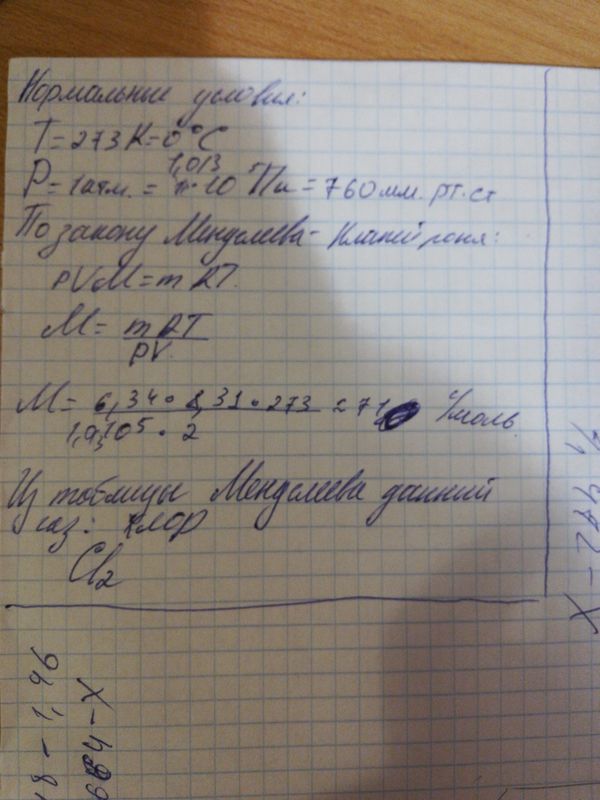 Нормальные условия:
T = 273 K = 0°C
P = 1 атм. = 1,013 · 10⁵ Па = 760 мм. рт. ст
По закону Менделеева - Клапейрона:
pVM = mRT.
M = mRT / pV.
M = 6,34 · 8,31 · 273 / 1,013·10⁵ · 2 = 71 г/моль
Из таблицы Менделеева данный
газ: хлор
Cl₂
18 - 1,96
664 - X
482 - X